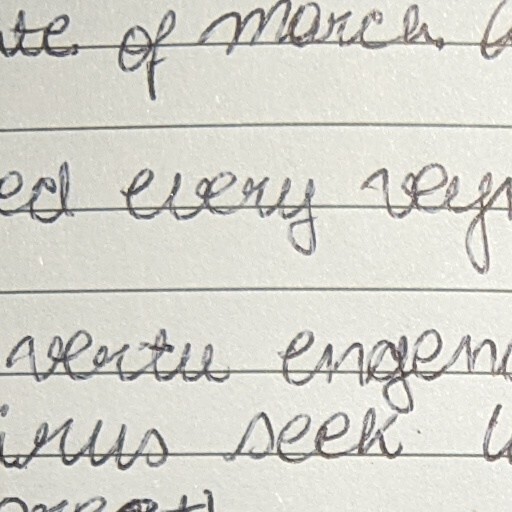 te of march.
ed every vey
vertu engen
irus seek